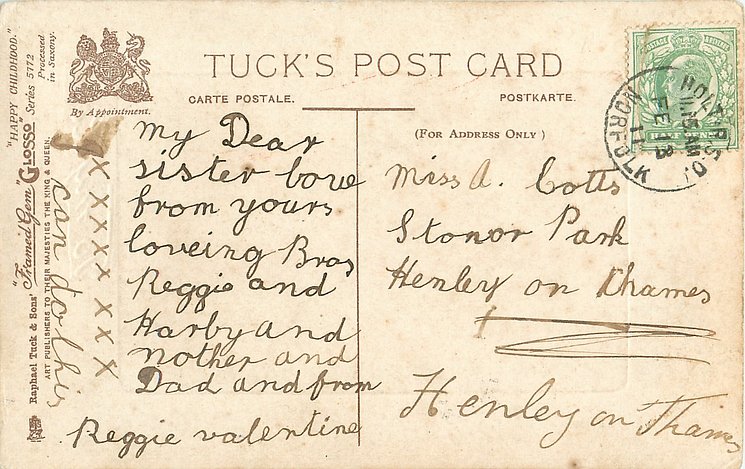 TUCK'S POST CARD
CARTE POSTALE.
POSTKARTE.
(FOR ADDRESS ONLY)
By Appointment.
"HAPPY CHILDHOOD."
Raphael Tuck & Sons' "Framed Gem" GLOSSO" Series 5772
Processed
in Saxony.
ART PUBLISHERS TO THEIR MAJESTIES THE KING & QUEEN.
My Dear
sister love
from yours
loveing Bros
Reggie and
Harby and
mother and
Dad and from
Reggie valentine
x x x x x x x
can do this
Miss A. Cotts
Stonor Park
Henley on Thames
Henley on Thames
HOLT R.S.O.
11.15 AM
FE 13
11
NORFOLK